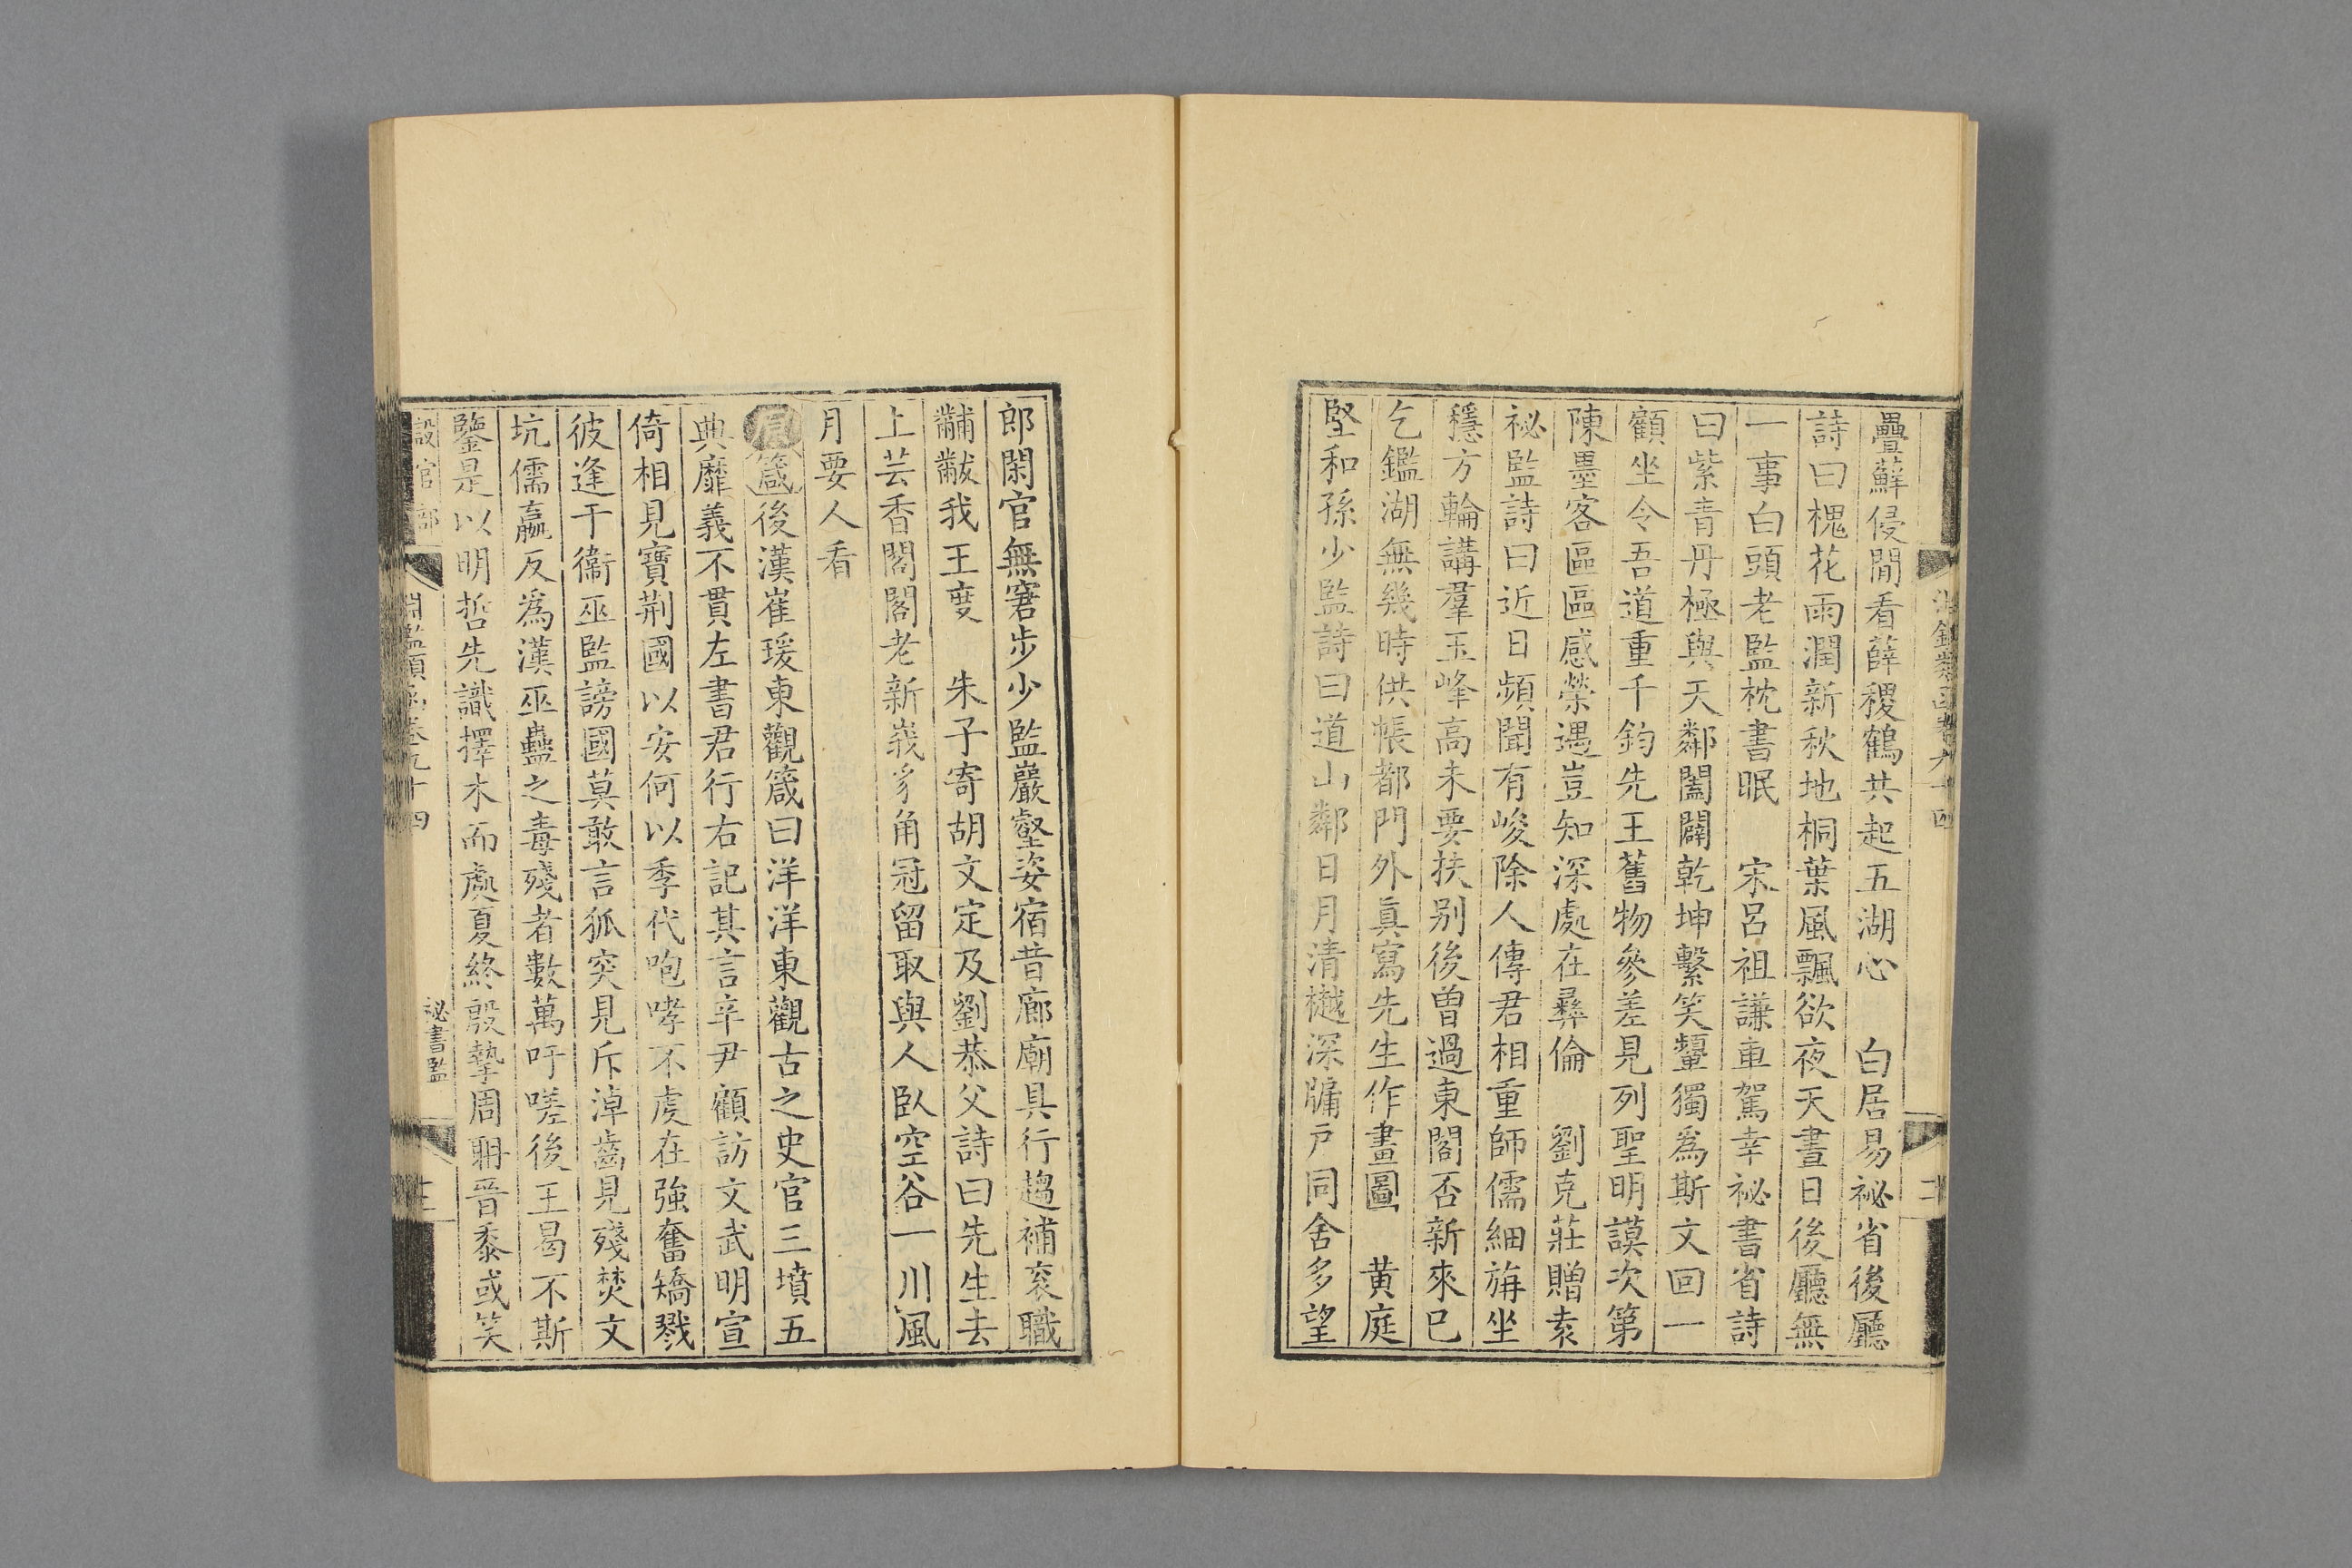 淵鑑類函卷九十四
疊蘚侵閒看薛稷鶴共起五湖心　白居易祕省後廳
詩曰槐花雨潤新秋地桐葉風飄欲夜天晝日後廳無
一事白頭老監枕書眠　宋呂祖謙車駕幸祕書省詩
曰紫青丹極與天鄰闔闢乾坤繫笑顰獨為斯文回一
顧坐令吾道重千鈞先王舊物參差見列聖明謨次第
陳墨客區區感榮遇豈知深處在彝倫　劉克莊贈袁
祕監詩曰近日頻聞有峻除人傳君相重師儒細旃坐
穩方輪講羣玉峰高未要扶別後曾過東閣否新來已
乞鑑湖無幾時供帳都門外眞寫先生作畫圖　黄庭
堅和孫少監詩曰道山鄰日月清樾深牖戶同舍多望
郎閑官無窘步少監巖壑姿宿昔廊廟具行趨補衮職
黼黻我王度　朱子寄胡文定及劉恭父詩曰先生去
上芸香閣閣老新峩豸角冠留取與人臥空谷一川風
月要人看
箴後漢崔瑗東觀箴曰洋洋東觀古之史官三墳五
典靡義不貫左書君行右記其言辛尹顧訪文武明宣
倚相見寶荆國以安何以季代咆哮不虔在強奮矯戮
彼逢干衞巫監謗國莫敢言狐突見斥淖齒見殘焚文
坑儒嬴反為漢巫蠱之毒殘者數萬吁嗟後王曷不斯
鑒是以明哲先識擇木而處夏終殷摯周聃晋黍或笑
設官部
淵鑑類函卷九十四
祕書監